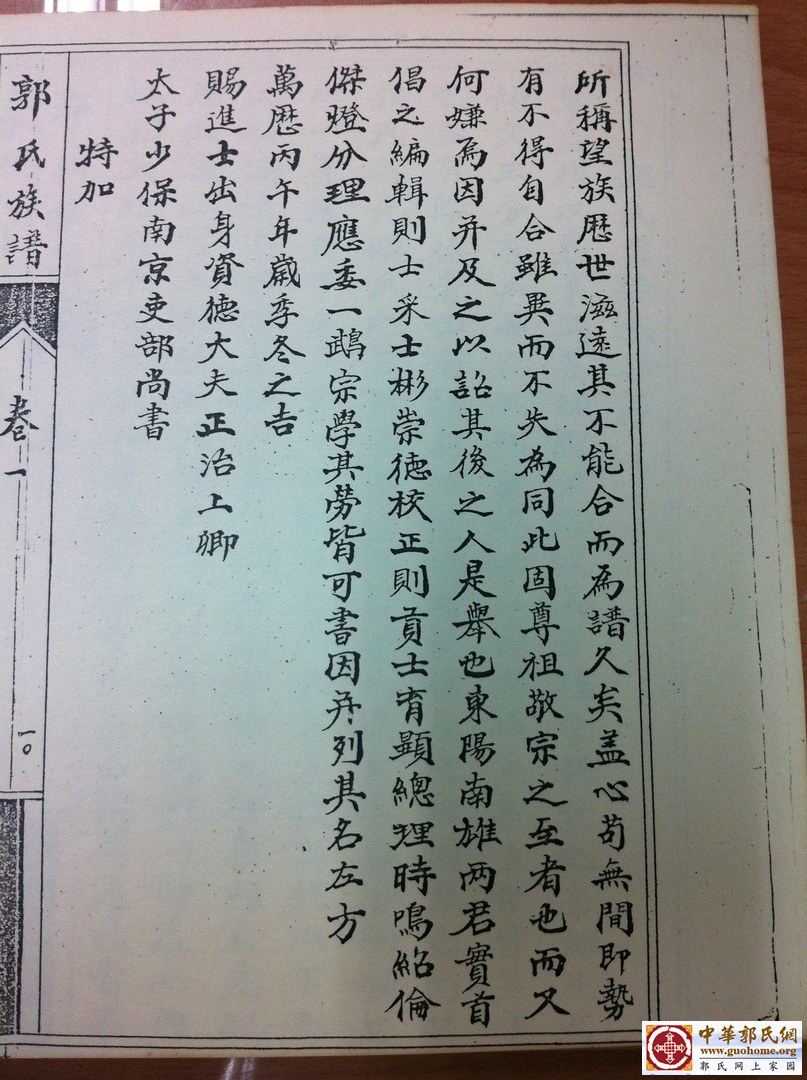 所稱望族歷世滋遠其不能合而為譜久矣蓋心苟無間即勢
有不得自合雖異而不失為同此固尊祖敬宗之至者也而又
何嫌焉因并及之以詔其後之人是舉也東陽南雄兩君實首
倡之編輯則士采士彬崇德校正則貢士有顯總理時鳴紹倫
傑燈分理應委一鵡宗學其勞皆可書因并列其名左方
萬歷丙午年歲季冬之吉
賜進士出身資德大夫正治上卿
太子少保南京吏部尚書
特加
郭氏族譜
卷一
一〇
中華郭氏網
www.guohome.org
郭氏网上家园